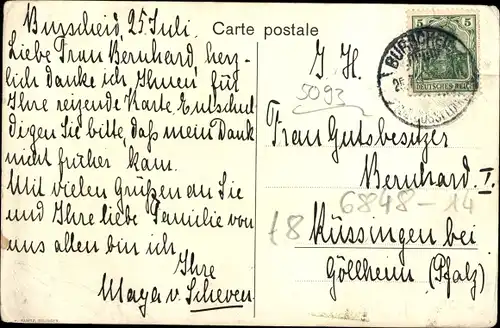 Burscheid, 25 Juli.
Liebe Frau Bernhard, herz-
lich danke ich Ihnen für
Ihre reizende Karte. Entschul
digen Sie bitte, daß mein Dank
nicht früher kam.
Mit vielen Grüßen an Sie
und Ihre liebe Familie von
uns allen bin ich
Ihre
Maya v. Scheven.
Carte postale
5
5
DEUTSCHES REICH
BURSCHEID
I. H.
5093
Frau Gutsbesitzer
Bernhard. I.
6848-14
18
Rüssingen bei
Göllheim (Pfalz)